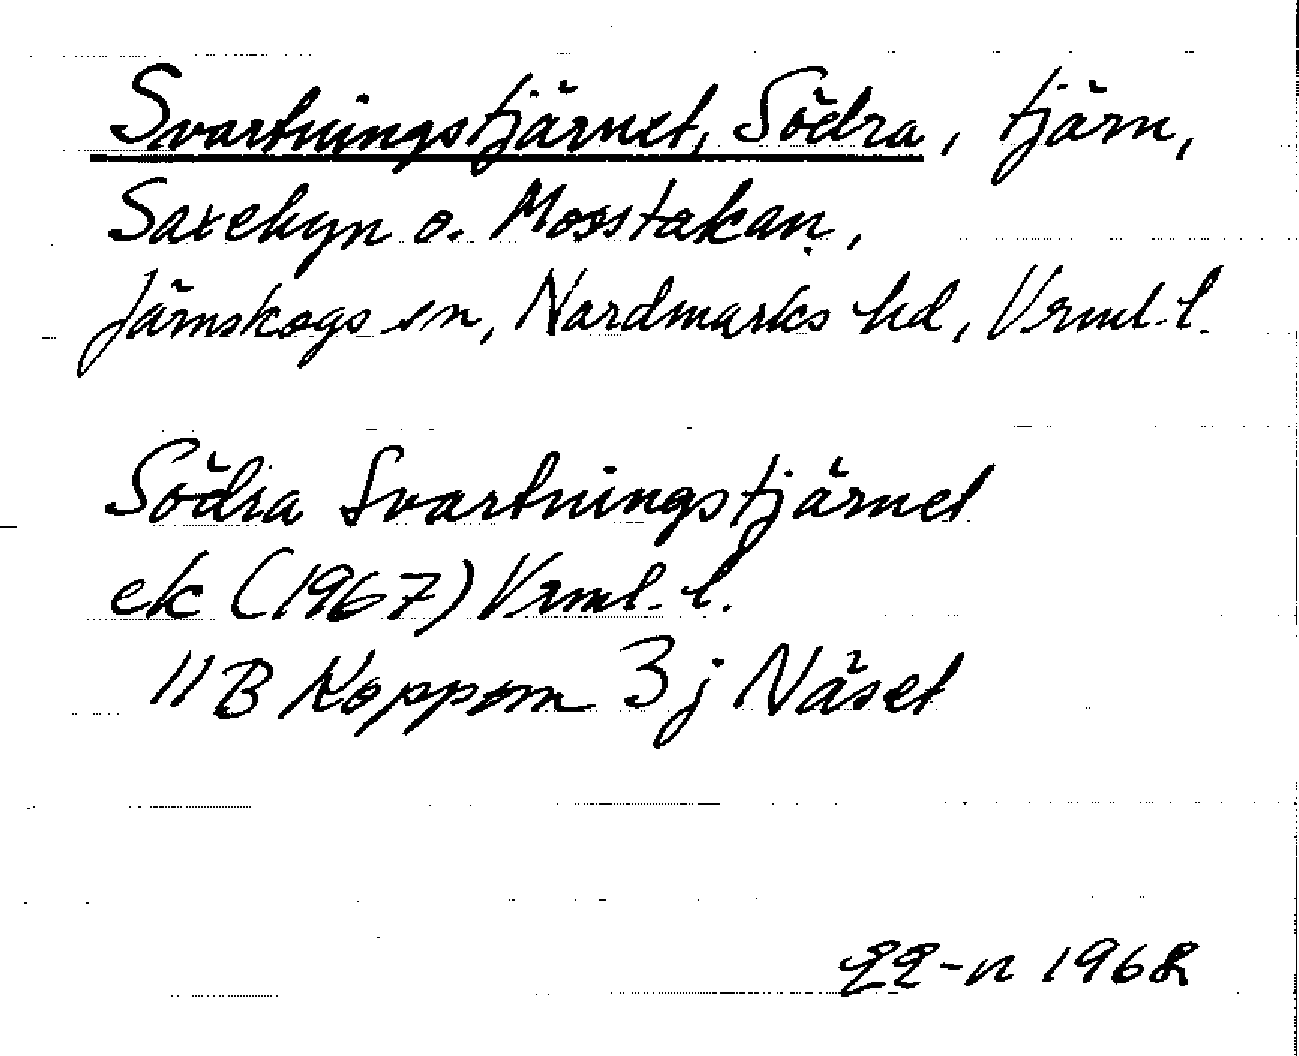 Svartningstjärnet, Södra, tjärn,
Saxebyn o. Mosstakan,
Järnskogs sn, Nordmarks hd, Vrml. l.
Södra Svartningstjärnet
ek (1967) Vrml. l.
11B Koppom 3j Näset
1968